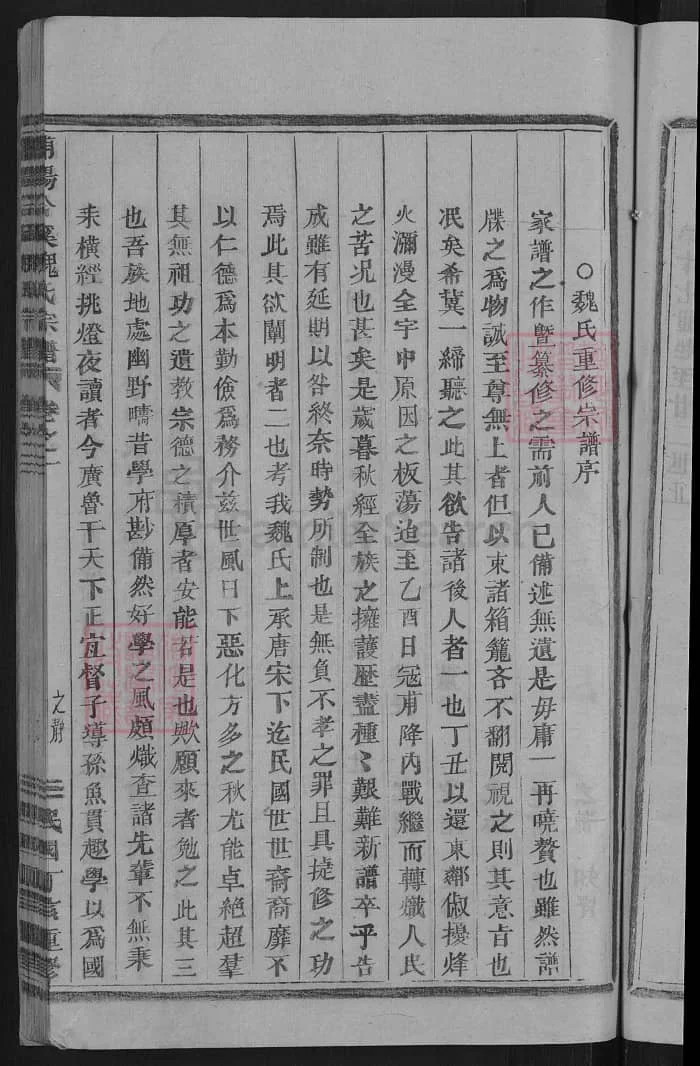 ○魏氏重修宗譜序
家譜之作暨纂修之需前人已備述無遺是毋庸一再曉贅也雖然譜
牒之爲物誠至尊無上者但以束諸箱籠吝不翻閱視之則其意旨也
泯矣希冀一締聽之此其欲告諸後人者一也丁丑以還東鄰俶擾烽
火瀰漫全宇中原因之板蕩迨至乙酉日冦甫降內戰繼而轉熾人民
之苦况也甚矣是歲暮秋經全族之擁護歷盡種〻艱難新譜卒乎告
成雖有延期以咎終奈時勢所制也是無負不孝之罪且具提修之功
焉此其欲闡明者二也考我魏氏上承唐宋下迄民國世世裔裔靡不
以仁德爲本勤儉爲務介兹世風日下惡化方多之秋尤能卓絕超羣
其無祖功之遺教宗德之積厚者安能若是也歟願來者勉之此其三
也吾族地處幽野疇昔學府尠備然好學之風頗熾查諸先輩不無秉
耒橫經挑燈夜讀者今廣魯干天下正宜督子導孫魚貫趣學以爲國
魏氏宗譜 卷之一
之靜
民國丁亥重鐫